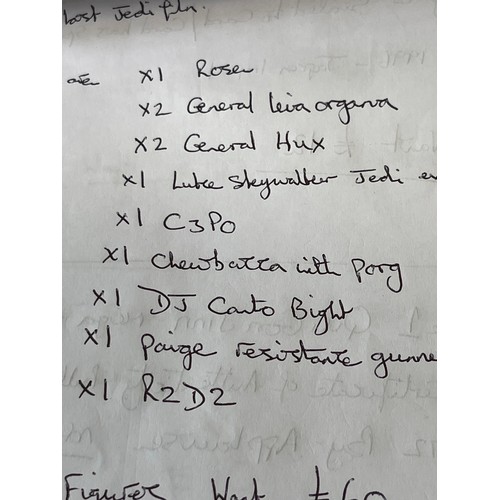 Last Jedi film.
x1 Rose
x2 General leia organa
x2 General Hux
x1 Luke Skywalker Jedi
x1 C3PO
x1 Chewbacca with Porg
x1 DJ Canto Bight
x1 paige resistance gunne
x1 R2D2
Figures Want £60